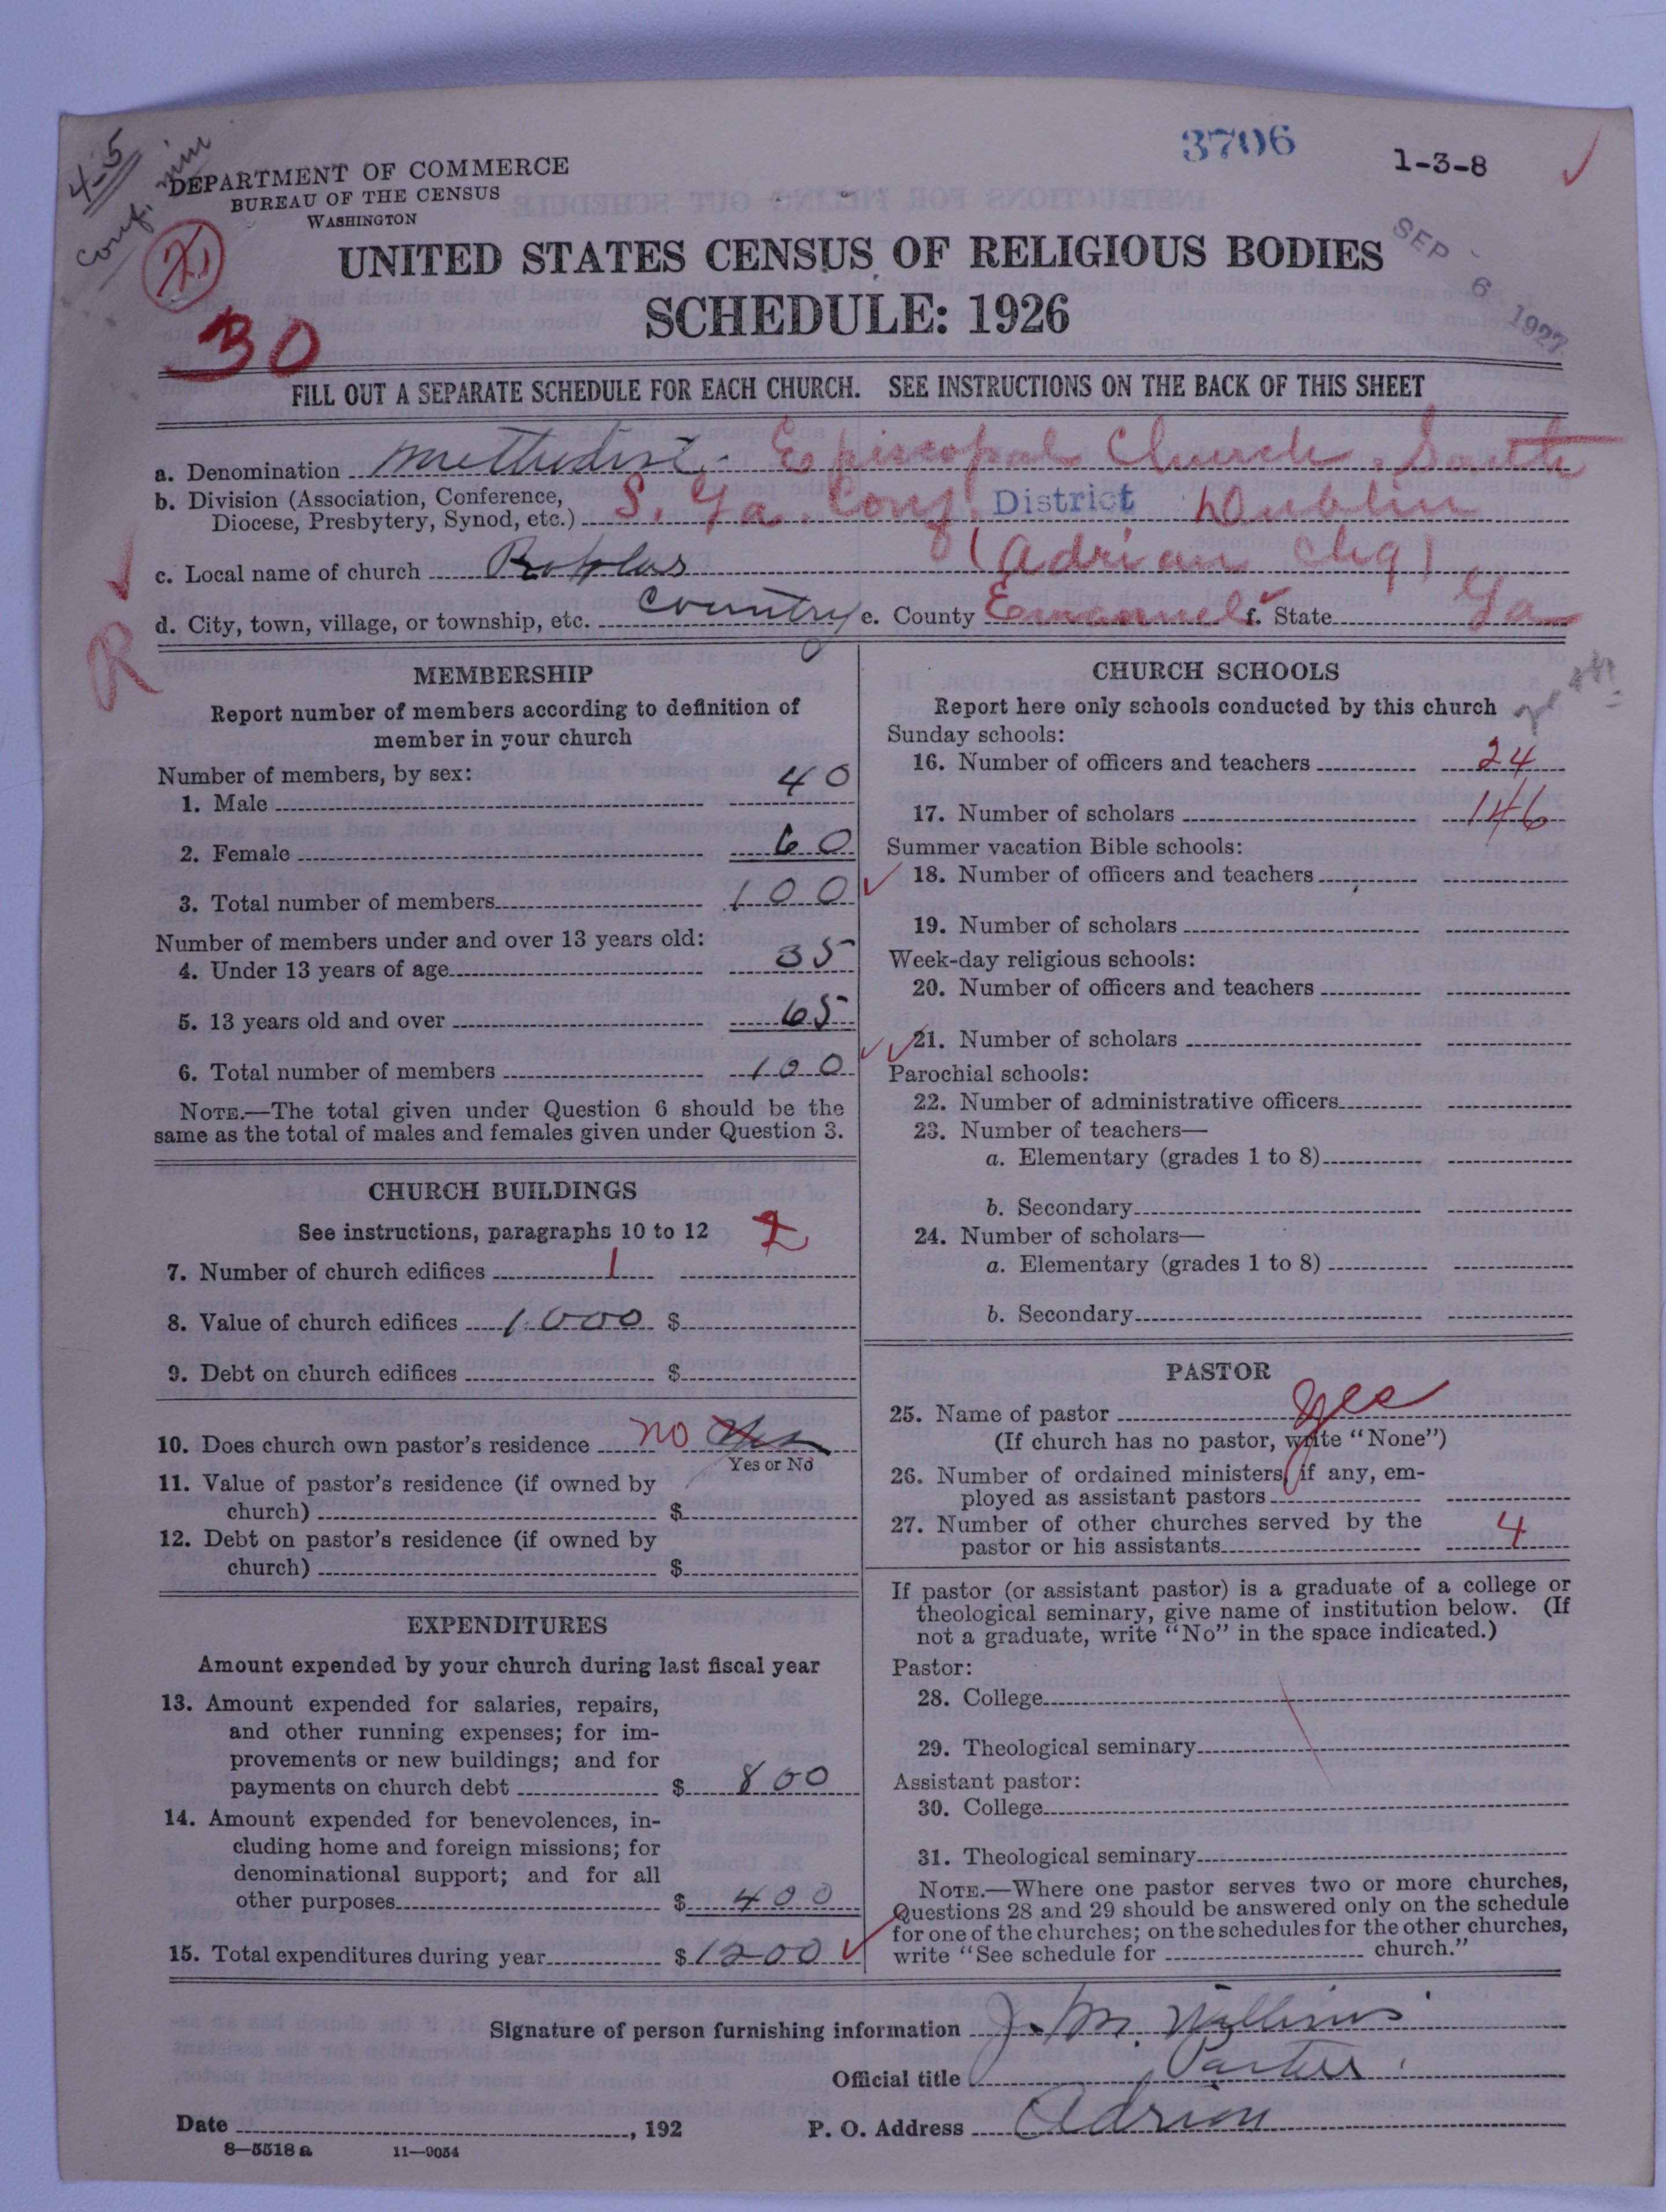 4-5
Conf. min
DEPARTMENT OF COMMERCE
BUREAU OF THE CENSUS
WASHINGTON
3706
1-3-8
SEP 6 1927
30
UNITED STATES CENSUS OF RELIGIOUS BODIES
SCHEDULE: 1926
FILL OUT A SEPARATE SCHEDULE FOR EACH CHURCH. SEE INSTRUCTIONS ON THE BACK OF THIS SHEET
a. Denomination Methodist Episcopal Church, South
b. Division (Association, Conference, Diocese, Presbytery, Synod, etc.) S. Ga. Conf. District Dublin
(Adrian Chg)
c. Local name of church
d. City, town, village, or township, etc. Country e. County Emanuel f. State Ga
R
MEMBERSHIP
Report number of members according to definition of
member in your church
Number of members, by sex:
1. Male 40
2. Female 60
3. Total number of members 100
Number of members under and over 13 years old:
4. Under 13 years of age 35
5. 13 years old and over 65
6. Total number of members 100
NOTE.—The total given under Question 6 should be the
same as the total of males and females given under Question 3.
CHURCH BUILDINGS
See instructions, paragraphs 10 to 12
7. Number of church edifices 1
8. Value of church edifices 1000 $
9. Debt on church edifices $
10. Does church own pastor's residence no Yes
Yes or No
11. Value of pastor's residence (if owned by
church) $
12. Debt on pastor's residence (if owned by
church) $
EXPENDITURES
Amount expended by your church during last fiscal year
13. Amount expended for salaries, repairs,
and other running expenses; for im-
provements or new buildings; and for
payments on church debt $ 800
14. Amount expended for benevolences, in-
cluding home and foreign missions; for
denominational support; and for all
other purposes $ 400
15. Total expenditures during year $ 1200
CHURCH SCHOOLS
Report here only schools conducted by this church
Sunday schools:
16. Number of officers and teachers 24
17. Number of scholars 146
Summer vacation Bible schools:
18. Number of officers and teachers
19. Number of scholars
Week-day religious schools:
20. Number of officers and teachers
21. Number of scholars
Parochial schools:
22. Number of administrative officers
23. Number of teachers—
a. Elementary (grades 1 to 8)
b. Secondary
24. Number of scholars—
a. Elementary (grades 1 to 8)
b. Secondary
PASTOR
25. Name of pastor yes
(If church has no pastor, write "None")
26. Number of ordained ministers, if any, em-
ployed as assistant pastors
27. Number of other churches served by the
pastor or his assistants 4
If pastor (or assistant pastor) is a graduate of a college or
theological seminary, give name of institution below. (If
not a graduate, write "No" in the space indicated.)
Pastor:
28. College
29. Theological seminary
Assistant pastor:
30. College
31. Theological seminary
NOTE.—Where one pastor serves two or more churches,
Questions 28 and 29 should be answered only on the schedule
for one of the churches; on the schedules for the other churches,
write "See schedule for church."
Signature of person furnishing information J. M.
Official title Paster
Date , 192 P. O. Address Adrian
8—5518 a 11—9054